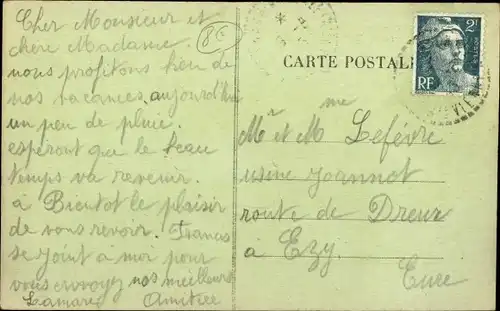 Cher Monsieur et
chère Madame.
nous profitons bien de
nos vacances. aujourd'hui
un peu de pluie
esperont que le beau
temps va revenir.
à Bientot le plaisir
de vous revoir. Francis
se joint a moi pour
vous envoyez nos meilleurs
Amitiée
8€
CARTE POSTALE
2F
RF
Mr et Mme Lefèvre
usine Joannot
route de Dreux
à Ezy.
Eure